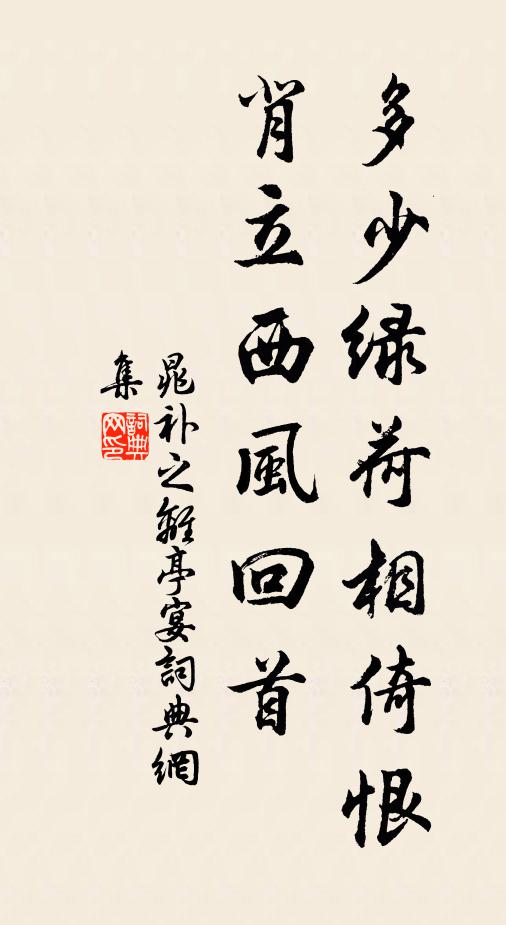 多少绿荷相倚恨
背立西風回首
晁补之離亭宴詞典網
集
詞典
网印